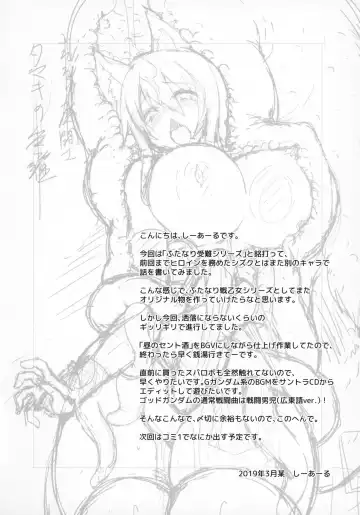 こんにちは、しーあーるです。
今回は「ふたなり受難シリーズ」と銘打って、
前回までヒロインを務めたシズクとはまた別のキャラで
話を書いてみました。
こんな感じで、ふたなり戦乙女シリーズとしてまた
オリジナル物を作っていけたらなと思います。
しかし今回、洒落にならないくらいの
ギッリギリで進行してました。
「昼のセント酒」をBGVにしながら仕上げ作業してたので、
終わったら早く銭湯行きてーです。
直前に買ったスパロボも全然触れてないので、
早くやりたいです。Gガンダム系のBGMをサントラCDから
エディットして遊びたいです。
ゴッドガンダムの通常戦闘曲は戦闘男児(広東語ver.)！
そんなこんなで、〆切に余裕もないので、このへんで。
次回はコミ1でなにか出す予定です。
2019年3月某 しーあーる